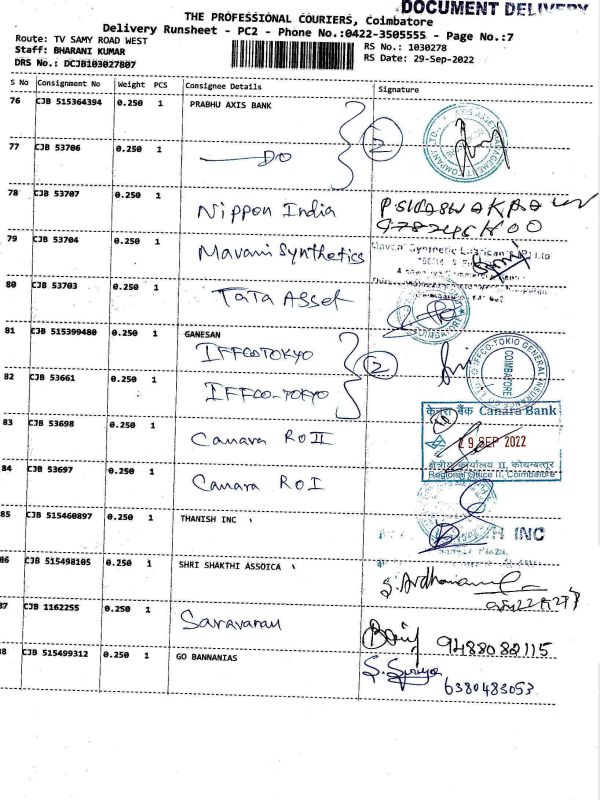 DOCUMENT DELIVERY
THE PROFESSIONAL COURIERS, Coimbatore
Delivery Runsheet - PC2 - Phone No.:0422-3505555 - Page No.:7
Route: TV SAMY ROAD WEST
RS No.: 1030278
Staff: BHARANI KUMAR
RS Date: 29-Sep-2022
DRS No.: DCJB103027807
S No Consignment No Weight PCS Consignee Details Signature
76 CJB 515364394 0.250 1 PRABHU AXIS BANK
2
77 CJB 53706 0.250 1 DO
78 CJB 53707 0.250 1 Nippon India
79 CJB 53704 0.250 1 Mavani Synthetics
80 CJB 53703 0.250 1 TATA Asset
COIMBATORE
81 CJB 515399480 0.250 1 GANESAN
IFFCOTOKYO
2
IFFCO-TOKIO GENERAL INSURANCE CO. LTD.
COIMBATORE
82 CJB 53661 0.250 1 IFFCO-TOKYO
83 CJB 53698 0.250 1 Canara RO II
केनरा बैंक Canara Bank
29 SEP 2022
क्षेत्रीय कार्यालय II, कोयम्बत्तूर
Regional Office II, Coimbatore
84 CJB 53697 0.250 1 Canara RO I
85 CJB 515460897 0.250 1 THANISH INC
INC
86 CJB 515498105 0.250 1 SHRI SHAKTHI ASSOICA
87 CJB 1162255 0.250 1 Saravanan
9488088115
88 CJB 515499312 0.250 1 GO BANNANIAS
6380483053